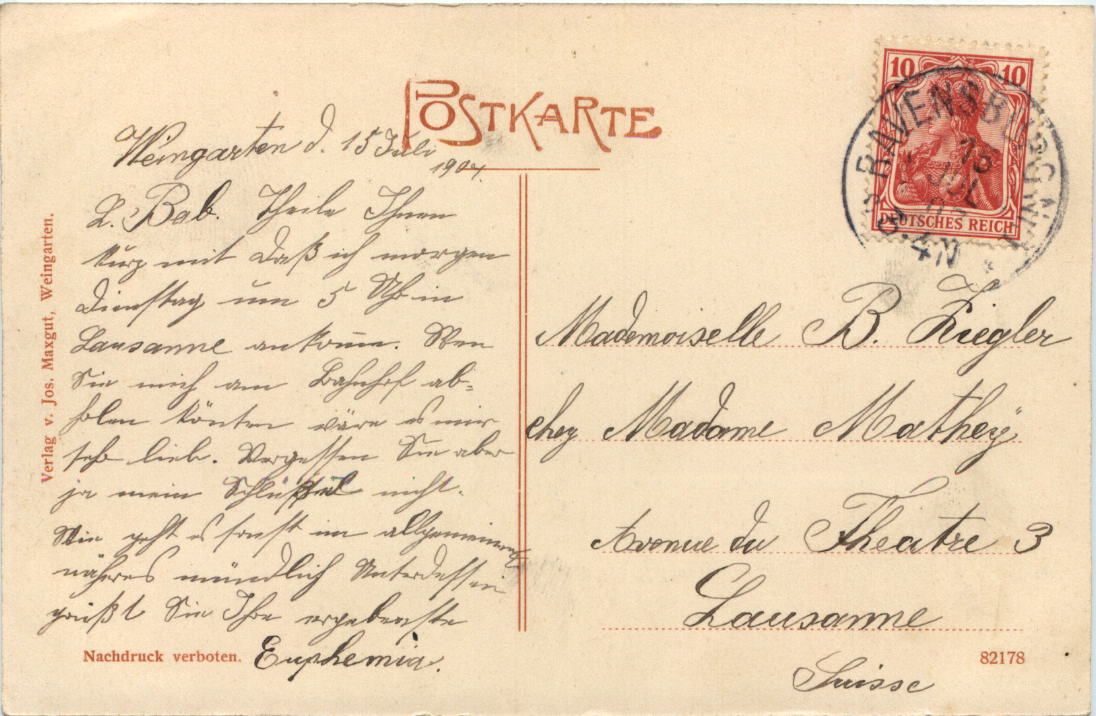 POSTKARTE
Weingarten d. 15 Juli
1907.
L. Bab. Theile Ihnen
kurz mit daß ich morgen
Dienstag um 5 Uhr in
Lausanne ankom̅e. Wen
Sie mich am Bahnhof ab-
holen könten wäre es mir
sehr lieb. Vergessen Sie aber
ja mein Schlüssel nicht.
Wie geht es sonst im allgemeinen
näheres mündlich Unterdessen
grüßt Sie Ihre ergebenste
Euphemia.
Verlag v. Jos. Maxgut, Weingarten.
Nachdruck verboten.
10 10
DEUTSCHES REICH
RAVENSBURG
15
JUL
Mademoiselle B. Ziegler
chez Madame Mathey
Avenue du Theatre 3
Lausanne
Suisse
82178